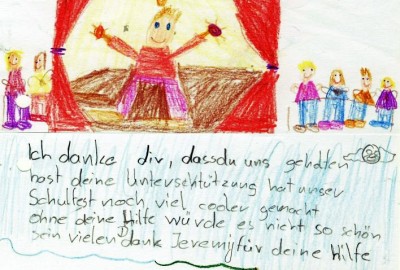 Ich danke dir, dassdu uns geholfen
hast deine Unterschtützung hat unser
Schulfest noch viel cooler gemacht
ohne deine Hilfe würde es nicht so schön
sein vielen Dank Jeremy für deine Hilfe